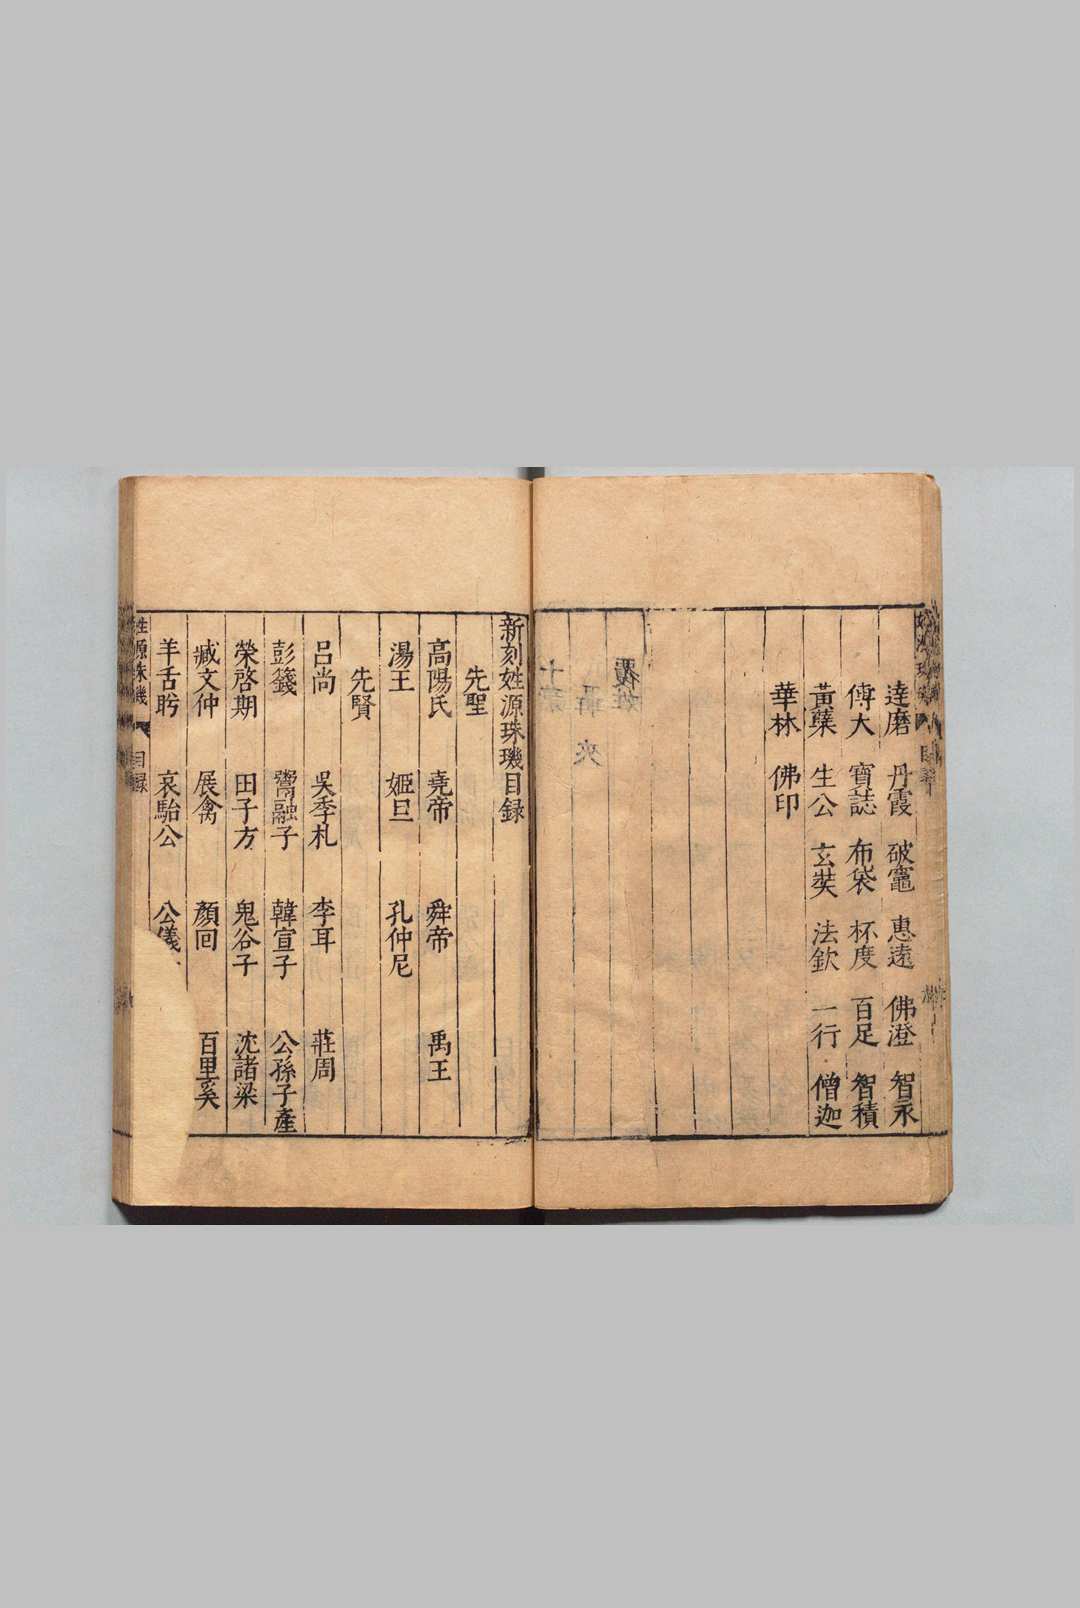 達磨 丹霞 破竈 惠遠 佛澄 智永
傅大 寶誌 布袋 杯度 百足 智積
黃蘗 生公 玄奘 法欽 一行 僧迦
華林 佛印
新刻姓源珠璣目録
先聖
高陽氏 堯帝 舜帝 禹王
湯王 姬旦 孔仲尼
先賢
呂尚 吳季札 李耳 莊周
彭籛 鬻融子 韓宣子 公孫子產
榮啓期 田子方 鬼谷子 沈諸梁
臧文仲 展禽 顏回 百里奚
羊舌肹 哀駘公 公儀
姓源珠璣 目録